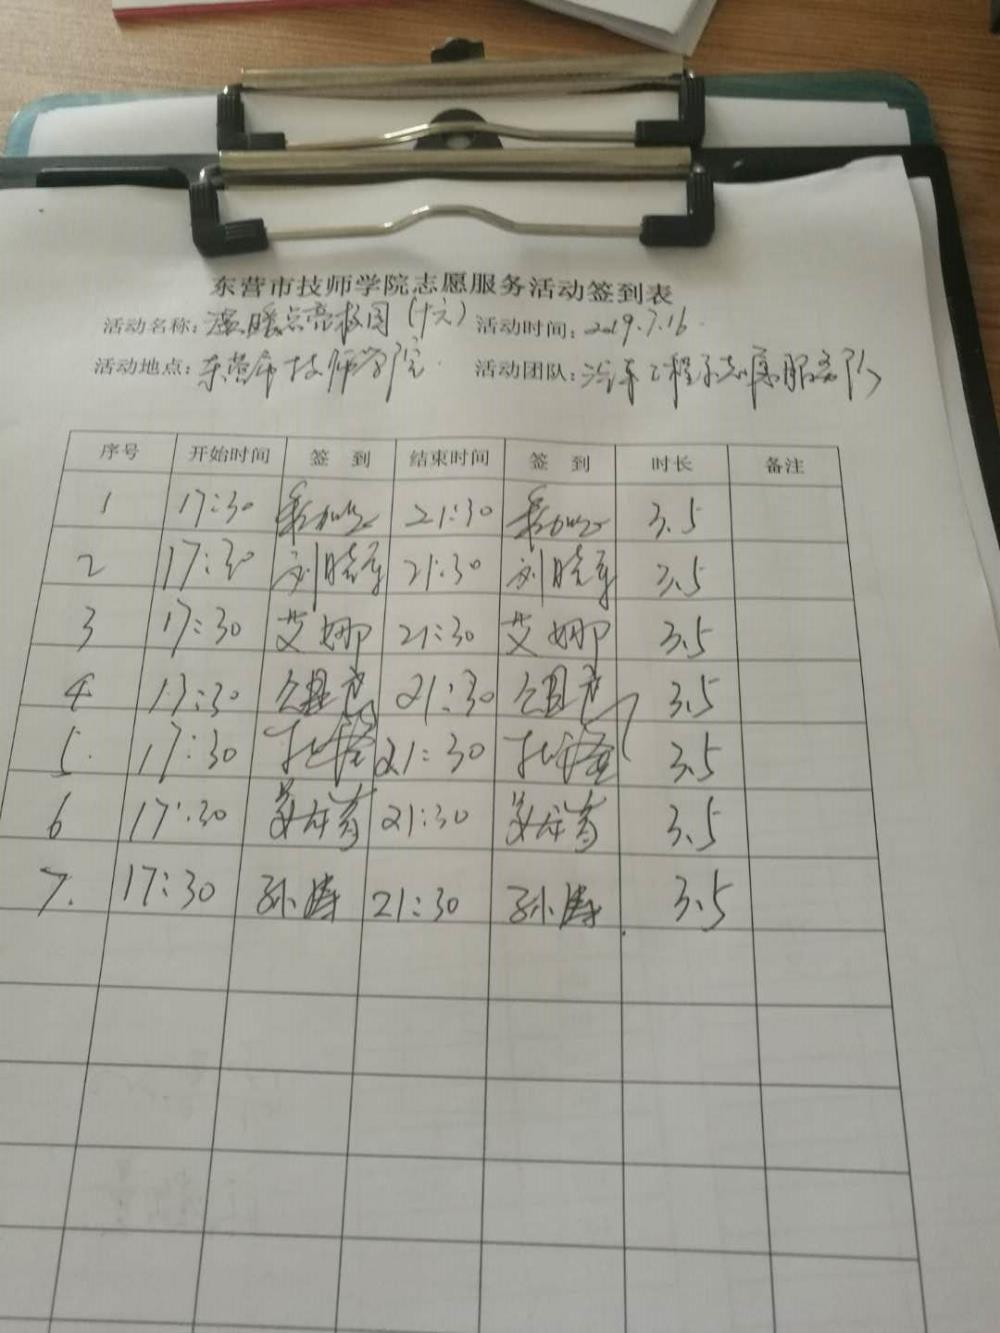 东营市技师学院志愿服务活动签到表
活动名称：温暖点亮校园（十六）活动时间：2019.7.16.
活动地点：东营市技师学院. 活动团队：汽车工程系志愿服务队
序号 开始时间 签 到 结束时间 签 到 时长 备注
1 17:30 21:30 3.5
2 17:30 刘晓军 21:30 刘晓军 3.5
3 17:30 艾娜 21:30 艾娜 3.5
4 17:30 21:30 3.5
5. 17:30 21:30 3.5
6 17:30 21:30 3.5
7. 17:30 孙涛 21:30 孙涛 3.5